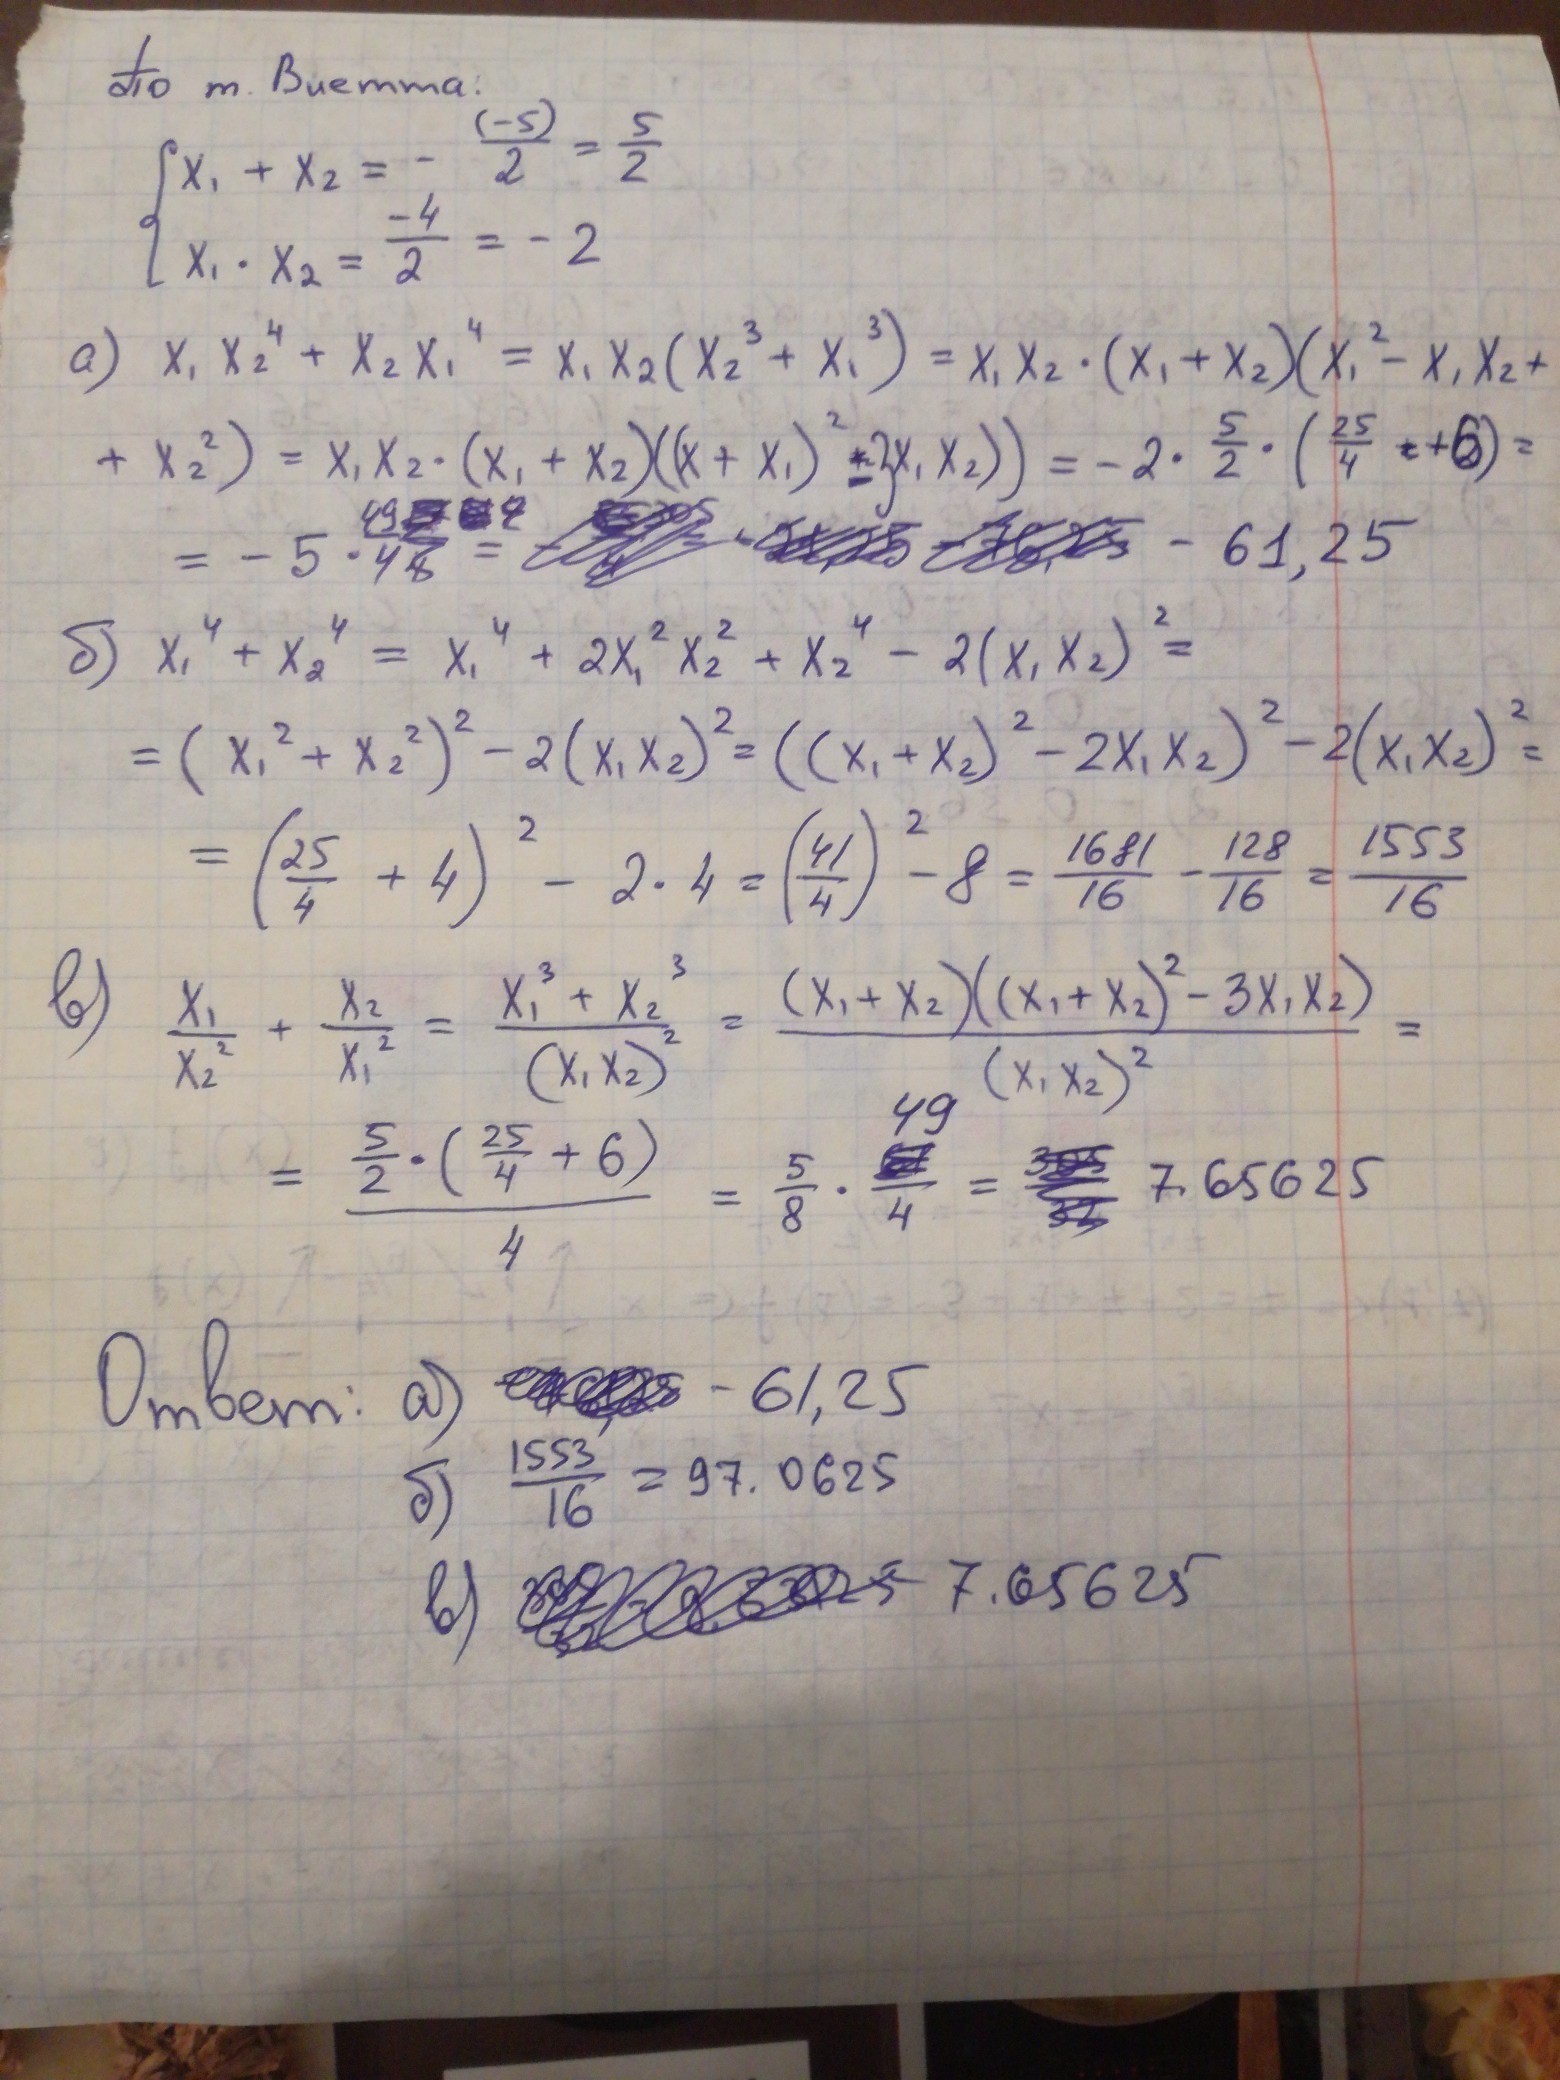 По т. Виетта:
x₁ + x₂ = - (-5)/2 = 5/2
x₁ · x₂ = -4/2 = -2
а) x₁ x₂⁴ + x₂ x₁⁴ = x₁ x₂ (x₂³ + x₁³) = x₁ x₂ · (x₁ + x₂)(x₁² - x₁ x₂ +
+ x₂²) = x₁ x₂ · (x₁ + x₂)((x + x₁)² - 3x₁ x₂)) = -2 · 5/2 · (25/4 + 6) =
= -5 · 49/4 = - 61,25
б) x₁⁴ + x₂⁴ = x₁⁴ + 2x₁² x₂² + x₂⁴ - 2(x₁ x₂)² =
= (x₁² + x₂²)² - 2(x₁x₂)² = ((x₁ + x₂)² - 2x₁ x₂)² - 2(x₁x₂)² =
= (25/4 + 4)² - 2 · 4 = (41/4)² - 8 = 1681/16 - 128/16 = 1553/16
в) x₁/x₂² + x₂/x₁² = (x₁³ + x₂³)/(x₁x₂)² = (x₁ + x₂)((x₁ + x₂)² - 3x₁x₂)/(x₁ x₂)² =
= 5/2 · (25/4 + 6)/4 = 5/8 · 49/4 = 7.65625
Ответ: а) - 61,25
б) 1553/16 = 97.0625
в) 7.65625